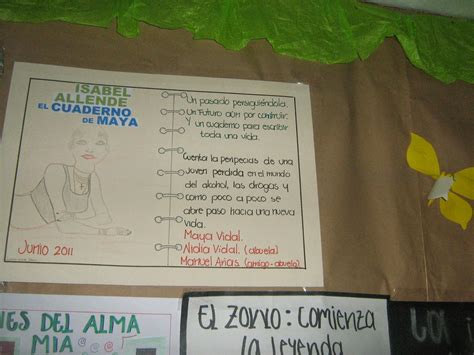 ISABEL
ALLENDE
EL CUADERNO
DE MAYA
Junio 2011
Un pasado persiguiéndola.
Un Futuro aún por construir.
Y un cuaderno para escribir
toda una vida.
Cuenta la peripecias de una
Joven perdida en el mundo
del alcohol, las drogas y
como poco a poco se
abre paso hacia una nueva
vida.
Maya Vidal.
Nidia Vidal. (abuela)
Manuel Arias. (amigo-abuela).
NES DEL ALMA
MIA
El Zorro: Comienza
la leyenda